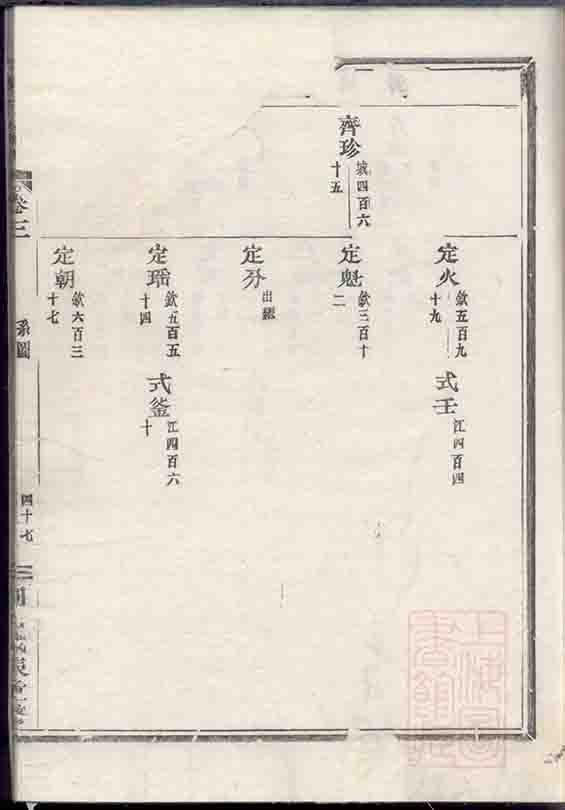 齊珍
城四百六
十五
定火
欽五百九
十九
式壬
江四百四
定魁
欽三百十
二
定分
出繼
定瑶
欽五百五
十四
式釜
江四百六
十
定朝
欽六百三
十七
卷三
系圖
四十七
上海圖書館藏